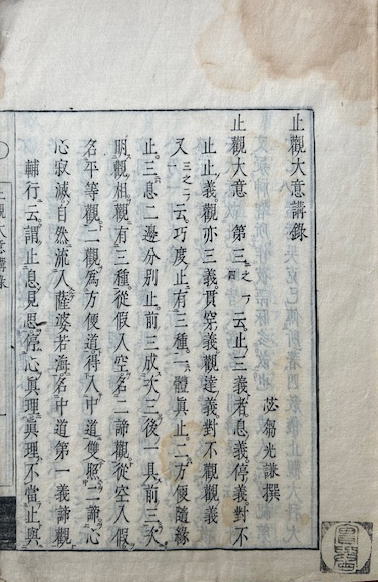 止觀大意講錄
苾芻光謙撰
止觀大意 第三三之一四云止三義者息義停義對不
止止義觀亦三義貫穿義觀達義對不觀觀義
又三之二一云巧度止有三種一體眞止二方便隨緣
止三息二邊分別止前三成次三後一具前三次
明觀相觀有三種從假入空名二諦觀從空入假
名平等觀二觀爲方便道得入中道雙照二諦心
心寂滅自然流入薩婆若海名中道第一義諦觀
輔行云謂止息見思停心眞理眞理不當止與
止觀大意講錄